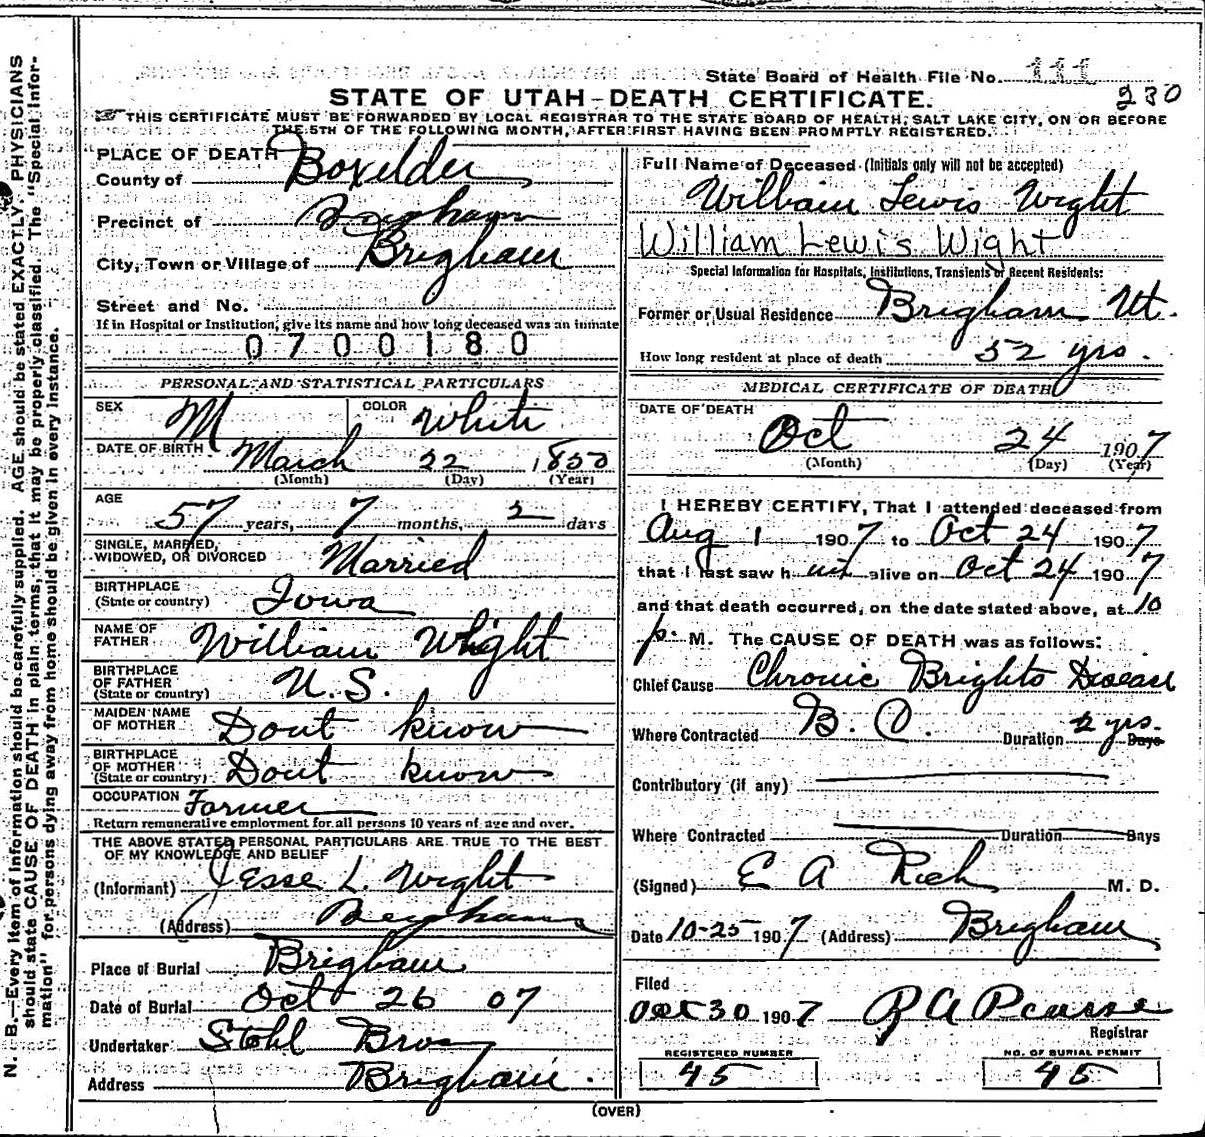 State Board of Health File No. 111
230
STATE OF UTAH-DEATH CERTIFICATE.
THIS CERTIFICATE MUST BE FORWARDED BY LOCAL REGISTRAR TO THE STATE BOARD OF HEALTH, SALT LAKE CITY, ON OR BEFORE
THE 5TH OF THE FOLLOWING MONTH, AFTER FIRST HAVING BEEN PROMPTLY REGISTERED.
PLACE OF DEATH
County of Boxelder
Precinct of Brigham
City, Town or Village of Brigham
Street and No.
If in Hospital or Institution, give its name and how long deceased was an inmate
0700180
PERSONAL AND STATISTICAL PARTICULARS
SEX M COLOR White
DATE OF BIRTH March 22 1850
(Month) (Day) (Year)
AGE 57 years, 7 months, 2 days
SINGLE, MARRIED,
WIDOWED, OR DIVORCED Married
BIRTHPLACE
(State or country) Iowa
NAME OF
FATHER William Wight
BIRTHPLACE
OF FATHER
(State or country) U.S.
MAIDEN NAME
OF MOTHER Dont know
BIRTHPLACE
OF MOTHER
(State or country) Dont know
OCCUPATION Farmer
Return remunerative employment for all persons 10 years of age and over.
THE ABOVE STATED PERSONAL PARTICULARS ARE TRUE TO THE BEST
OF MY KNOWLEDGE AND BELIEF
(Informant) Jesse L. Wight
(Address) Brigham
Place of Burial Brigham
Date of Burial Oct 26 07
Undertaker Stohl Bros
Address Brigham.
Full Name of Deceased (Initials only will not be accepted)
William Lewis Wight
William Lewis Wight
Special Information for Hospitals, Institutions, Transients or Recent Residents:
Former or Usual Residence Brigham Ut.
How long resident at place of death 52 yrs.
MEDICAL CERTIFICATE OF DEATH
DATE OF DEATH
Oct 24 1907
(Month) (Day) (Year)
I HEREBY CERTIFY, That I attended deceased from
Aug 1 1907 to Oct 24 1907
that I last saw him alive on Oct 24 1907
and that death occurred, on the date stated above, at 10
p. M. The CAUSE OF DEATH was as follows:
Chief Cause Chronic Brights Disease
Where Contracted B. C. Duration 2 yrs. Days
Contributory (if any)
Where Contracted Duration Days
(Signed) E A Rich M. D.
Date 10-25 1907 (Address) Brigham
Filed
Oct 30 1907 R A Pearse
Registrar
REGISTERED NUMBER
45
NO. OF BURIAL PERMIT
45
(OVER)
N. B.—Every item of information should be carefully supplied. AGE should be stated EXACTLY. PHYSICIANS
should state CAUSE OF DEATH in plain terms, that it may be properly classified. The "Special Infor-
mation" for persons dying away from home should be given in every instance.